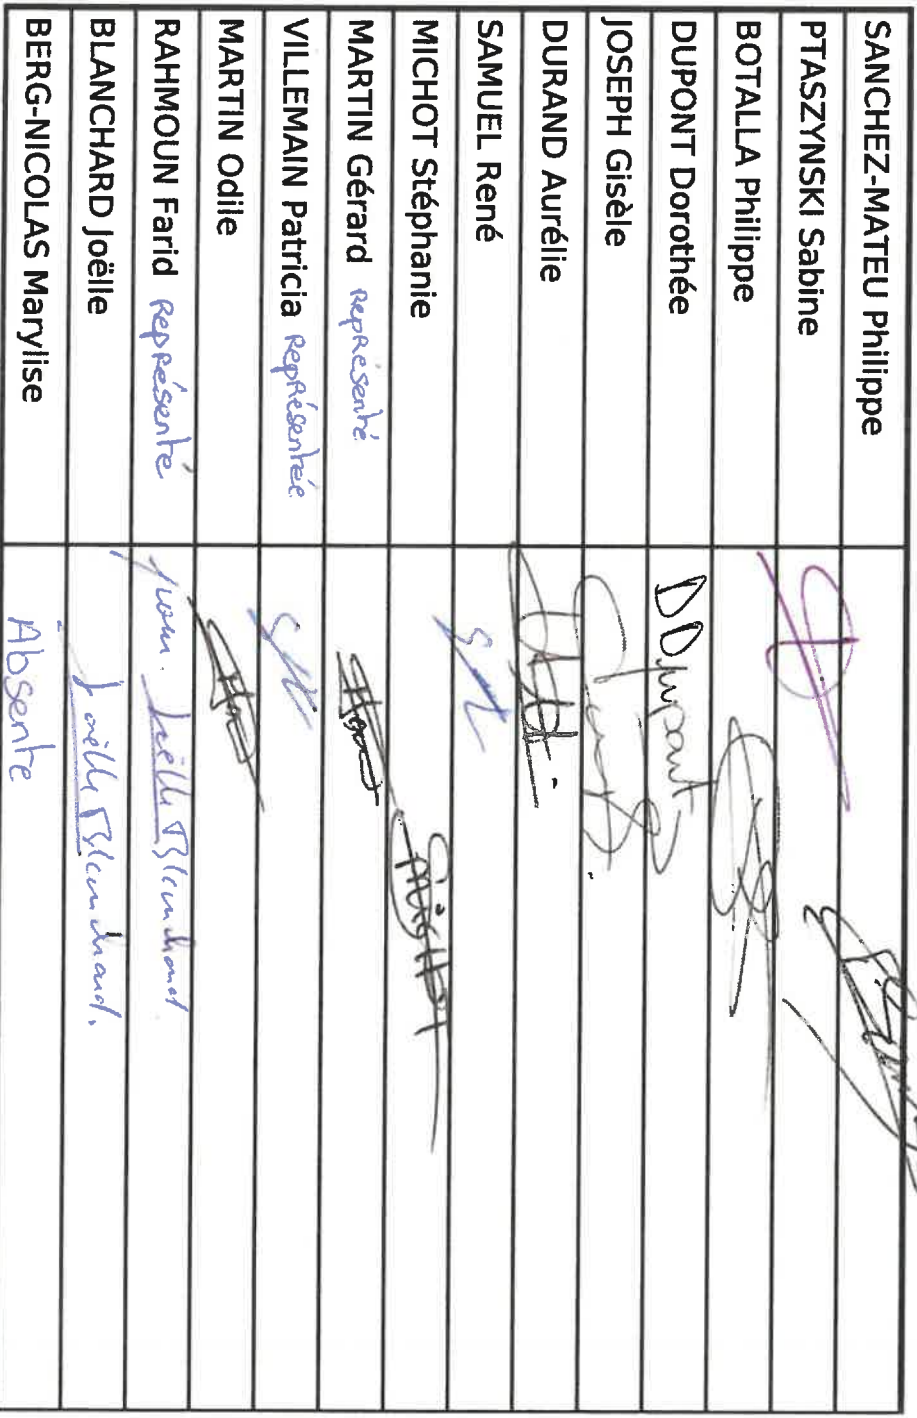 SANCHEZ-MATEU Philippe
PTASZYNSKI Sabine
BOTALLA Philippe
DUPONT Dorothée DDupont
JOSEPH Gisèle
DURAND Aurélie
SAMUEL René
MICHOT Stéphanie
MARTIN Gérard Représenté
VILLEMAIN Patricia Représentée
MARTIN Odile
RAHMOUN Farid Représenté Joëlle Blanchard
BLANCHARD Joëlle Joëlle Blanchard.
BERG-NICOLAS Marylise Absente